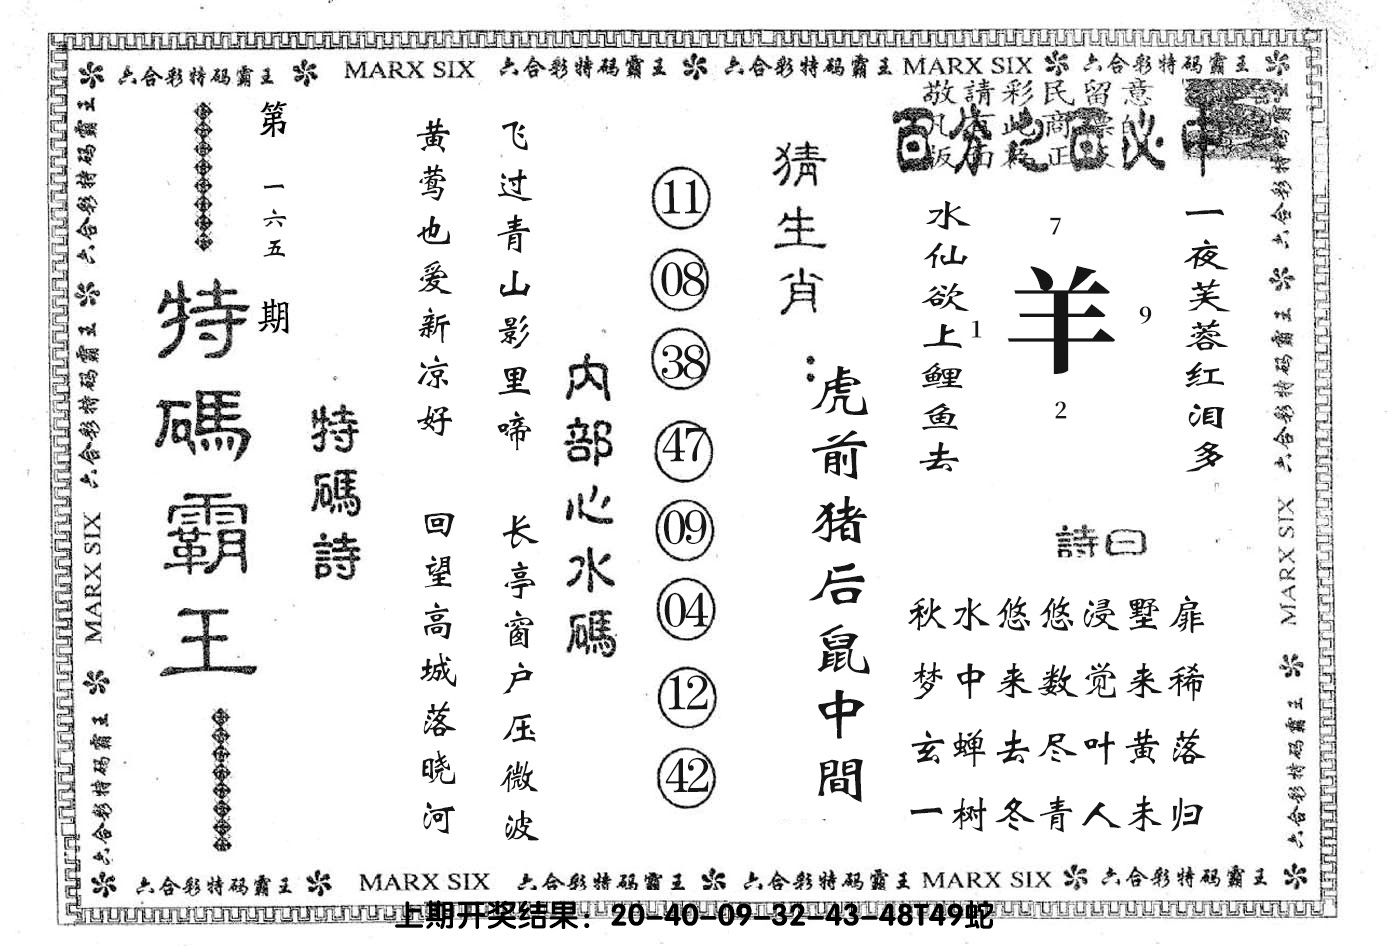 六合彩特码霸王 MARX SIX 六合彩特码霸王 六合彩特码霸王 MARX SIX 六合彩特码霸王
敬請彩民留意
百分之百必中
一夜芙蓉红泪多
水仙欲上鲤鱼去
7
羊
1
9
2
詩曰
秋水悠悠浸墅扉
梦中来数觉来稀
玄蝉去尽叶黄落
一树冬青人未归
猜生肖：
虎前猪后鼠中間
11
08
38
47
09
04
12
42
内部心水碼
飞过青山影里啼
长亭窗户压微波
黄莺也爱新凉好
回望高城落晓河
特碼詩
第一六五期
特碼霸王
六合彩特码霸王
六合彩特码霸王
MARX SIX
六合彩特码霸王
六合彩特码霸王
六合彩特码霸王
MARX SIX
六合彩特码霸王
六合彩特码霸王 MARX SIX 六合彩特码霸王 六合彩特码霸王 MARX SIX 六合彩特码霸王
上期开奖结果：20-40-09-32-43-48T49蛇